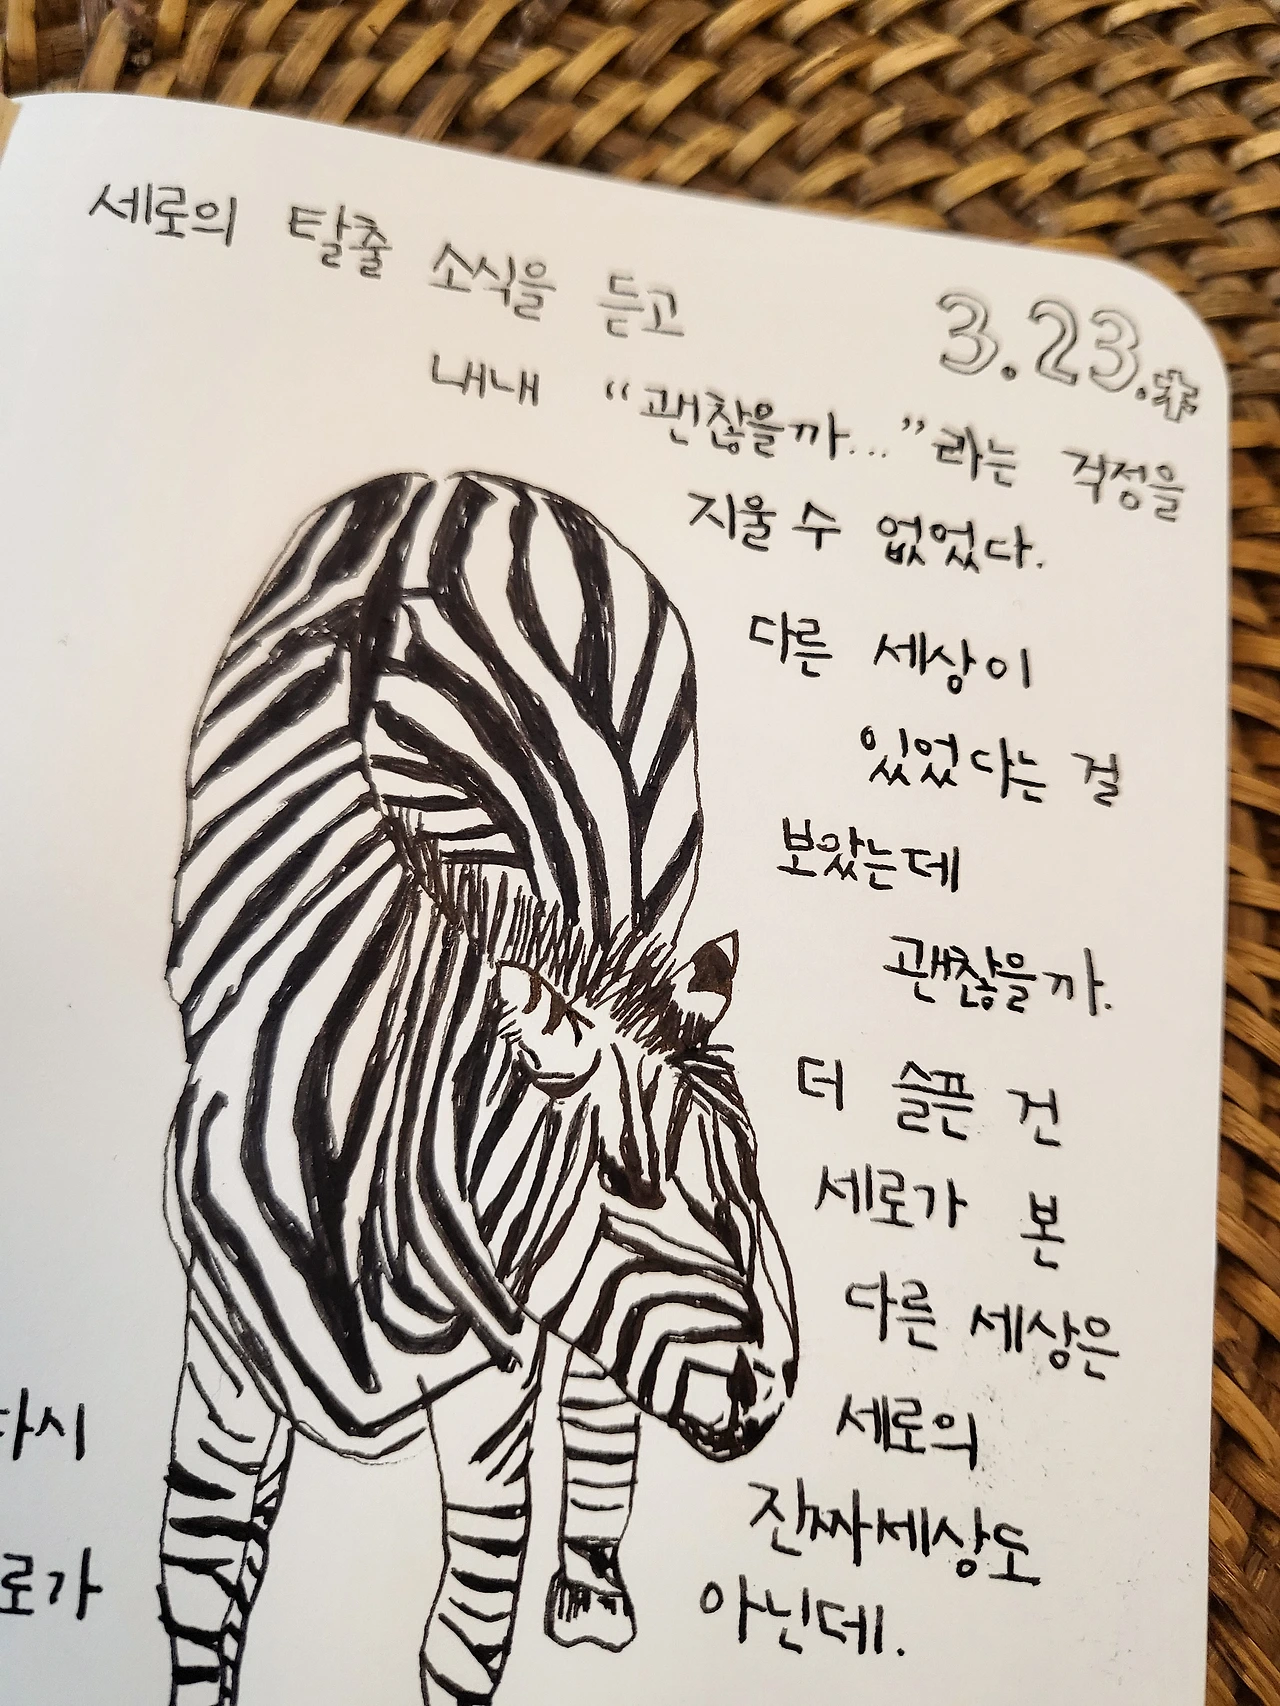 세로의 탈출 소식을 듣고
3.23.木
내내 "괜찮을까..."라는 걱정을
지울 수 없었다.
다른 세상이
있었다는 걸
보았는데
괜찮을까.
더 슬픈 건
세로가 본
다른 세상은
세로의
진짜세상도
아닌데.
다시
로가